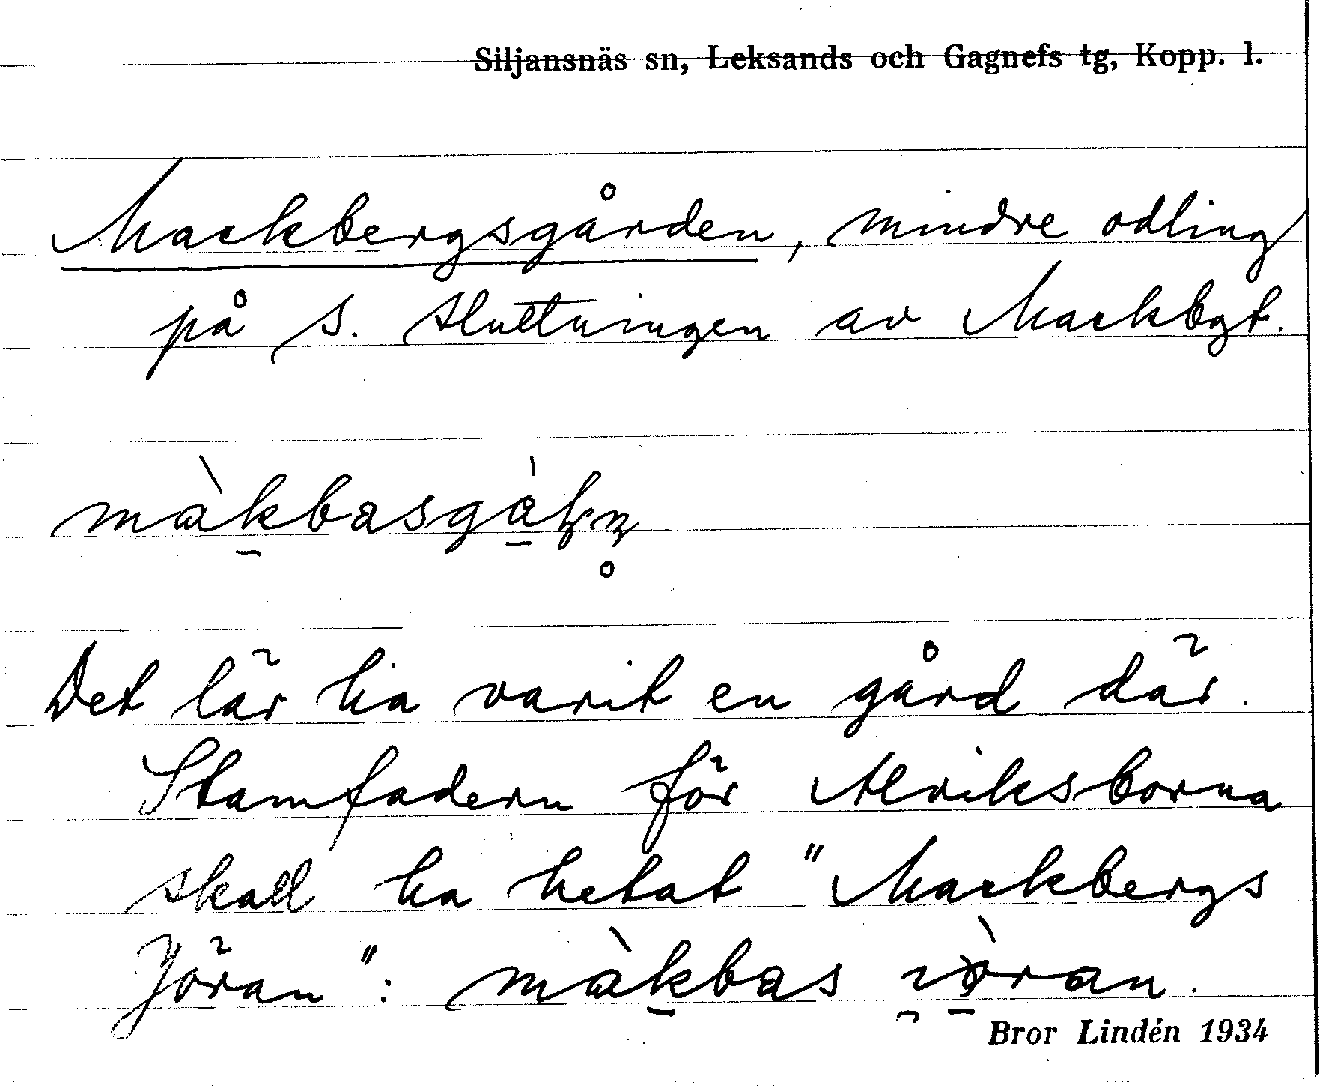 Siljansnäs sn, Leksands och Gagnefs tg, Kopp. l.
Mackbergsgården, mindre odling
på s. sluttningen av Mackbgt.
màkbasgàɽn̥
Det lär ha varit en gård där.
Stamfadern för Alriksborna
skall ha hetat "Mackbergs
Jöran": màkbas
Bror Lindén 1934